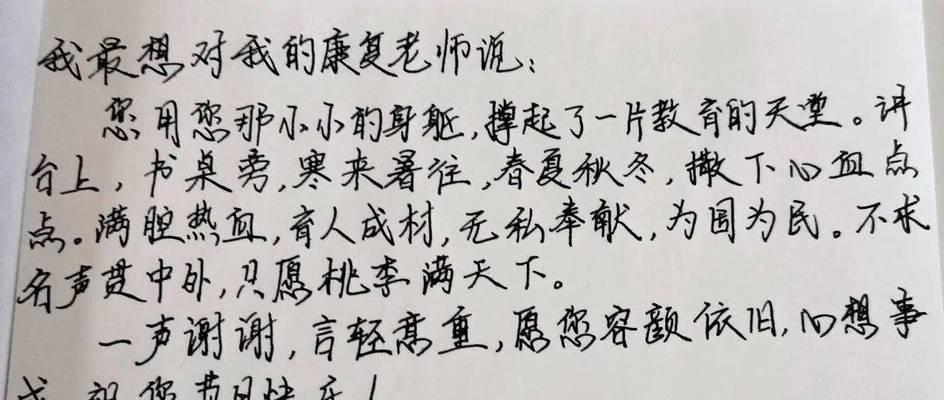 我最想对我的康复老师说：
您用您那小小的身躯，撑起了一片教育的天堂。讲
台上，书桌旁，寒来暑往，春夏秋冬，撒下心血点
点。满腔热血，育人成材，无私奉献，为国为民。不求
名声贯中外，只愿桃李满天下。
一声谢谢，言轻意重，愿您容颜依旧，心想事
成，祝您节日快乐！